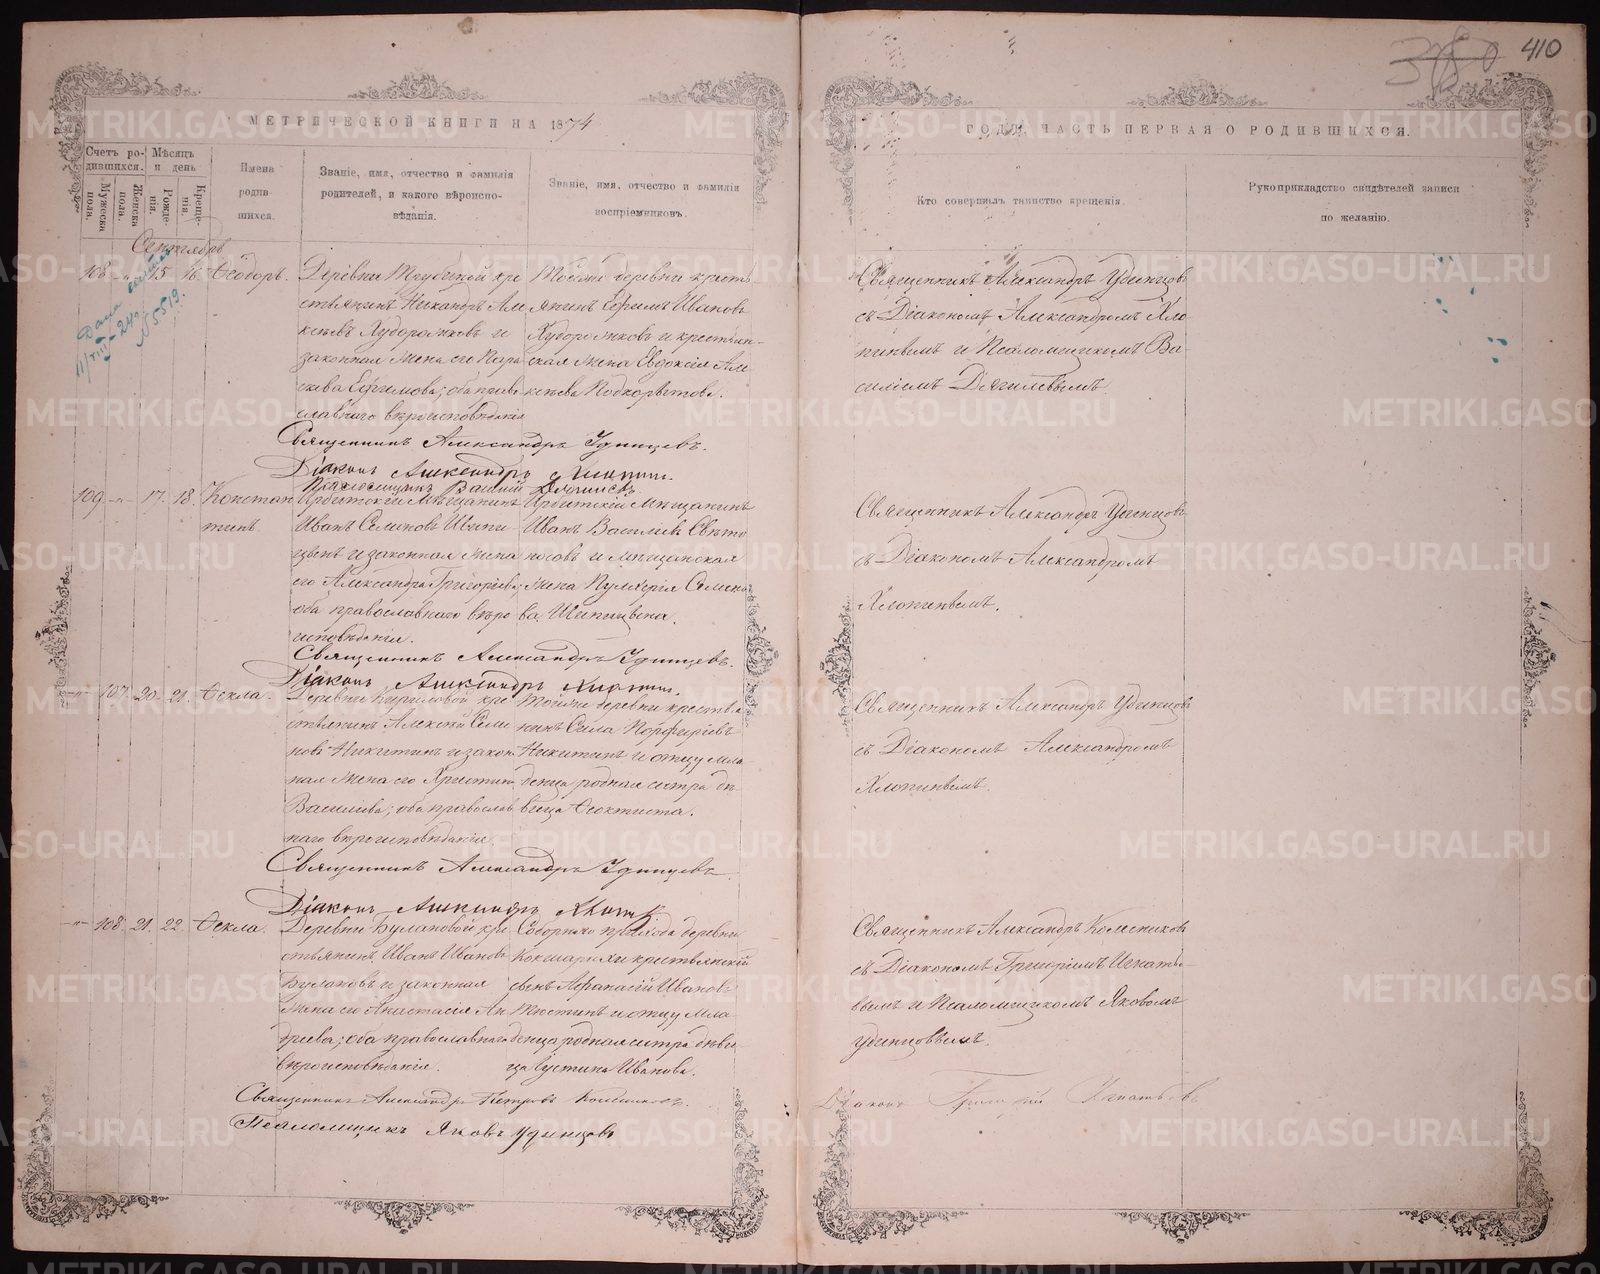 410
МЕТРИЧЕСКОЙ КНИГИ НА 1874
ГОДЪ, ЧАСТЬ ПЕРВАЯ О РОДИВШИХСЯ.
Счетъ ро-
дившихся.
Мужеска
пола.
Женска
пола.
Мѣсяцъ
и день
Рожде-
нія.
Креще-
нія.
Имена
родив
шихся.
Званіе, имя, отчество и фамилія
родителей, и какого вѣроиспо-
вѣданія.
Званіе, имя, отчество и фамилія
воспріемниковъ.
Кто совершалъ таинство крещенія.
Рукоприкладство свидѣтелей записи
по желанію.
Сентябрь
108 15 16 Ѳеодоръ.
№ 5519.
Деревни кре
стьянинъ Никандръ Але
ксѣевъ Худорожковъ и
законная жена его Пара
скева Ефимова; оба право
славнаго вѣроисповѣданія
Тойже деревни кресть
янинъ Ефимъ Ивановъ
Худорожковъ и крестьян-
ская жена Евдокія Але
ксѣева Подкорытова.
Священникъ Александръ Удинцовъ
съ Діакономъ Александромъ Хло
пинымъ и Псаломщикомъ Ва-
силіемъ Дягилевымъ
Священникъ Александръ Удинцевъ.
Діаконъ Александръ Хлопин.
Псаломщикъ Василій
109 17. 18. Констан
тинъ.
Ирбитскій Мѣщанинъ
Иванъ Семеновъ Шипи
цынъ и законная жена
его Александра Григорьева;
оба православнаго вѣро
исповѣданія.
Ирбитскій мѣщанинъ
Иванъ Васильевъ
и мѣщанская
жена Пулхерія Семено
ва Шипицына.
Священникъ Александръ Удинцовъ
съ Діакономъ Александромъ
Хлопинымъ.
Священникъ Александръ Удинцевъ.
Діаконъ Александръ Хлопин.
107. 20. 21. Ѳекла.
Деревни Кириловой кре
стьянинъ Алексѣй Семе
новъ Никитинъ и закон
ная жена его Христина
Васильева; оба православ
наго вѣроисповѣданія
Тойже деревни крестья
нинъ Сила Порфирьевъ
Никитинъ и отцу мла
денца родная сестра дѣ
вица Ѳеоктиста.
Священникъ Александръ Удинцовъ
съ Діакономъ Александромъ
Хлопинымъ.
Священникъ Александръ Удинцевъ.
Діаконъ Александръ Хлопин
108. 21. 22 Ѳекла.
Деревни Булановой кре
стьянинъ Иванъ Ивановъ
Булановъ и законная
жена его Анастасія Ан
дреева; оба православнаго
вѣроисповѣданія.
прихода деревни
Кокшарихи крестьянскій
сынъ Афанасій Ивановъ
и отцу мла
денца родная сестра дѣви
ца Устина Иванова.
Священникъ Александръ Колесниковъ
съ Діакономъ Григоріемъ Игнатье
вымъ и Псаломщикомъ Яковомъ
Удинцовымъ.
Священникъ Александръ Петровъ Колесниковъ.
Псаломщикъ Яковъ Удинцовъ
Діаконъ Григорій Игнатьевъ
METRIKI.GASO-URAL.RU